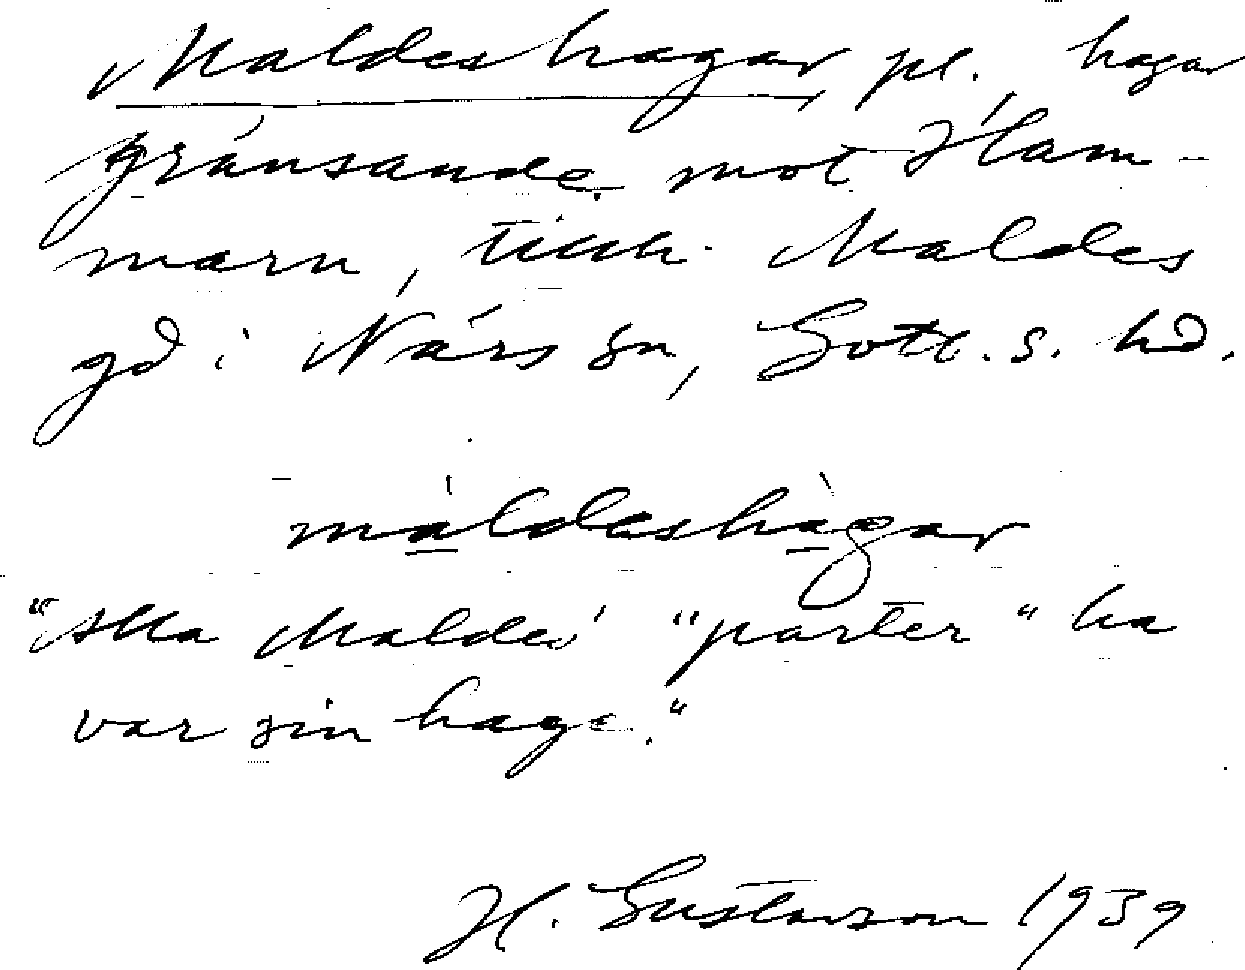 Maldeshagar, pl., hagar
gränsande mot Ham-
marn, tillh. Maldes
gd i Närs sn, Gotl. s. hd.
máldeshàgar
"Alla Maldes' "parter" ha
var sin hage."
H. Gustavson 1939